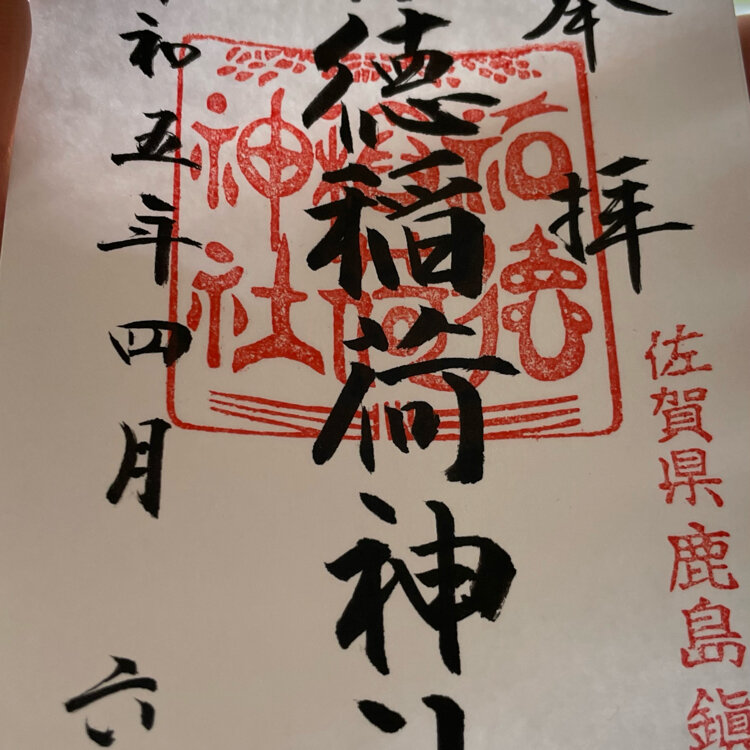 佐賀県鹿島鎮
奉拝
徳稲荷神社
祐徳
稲荷
神社
令和五年四月六